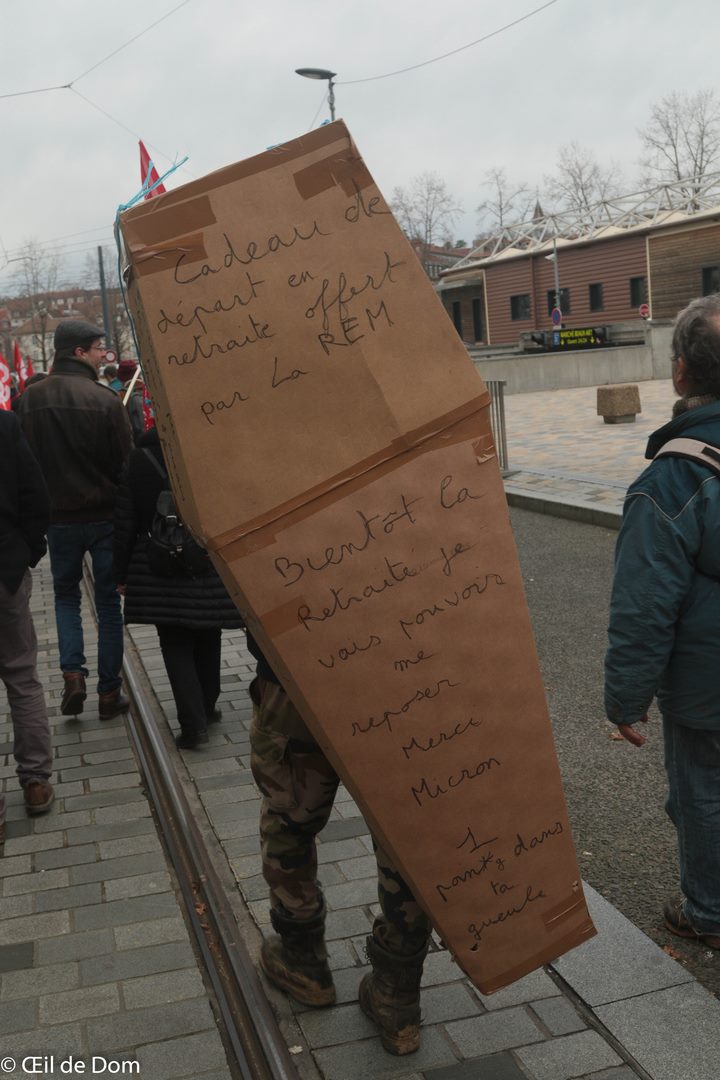 Cadeau de
départ en
retraite offert
par La REM
Bientôt la
Retraite je
vais pouvoir
me
reposer
Merci
Micron
1
point dans
ta
gueule
© Œil de Dom